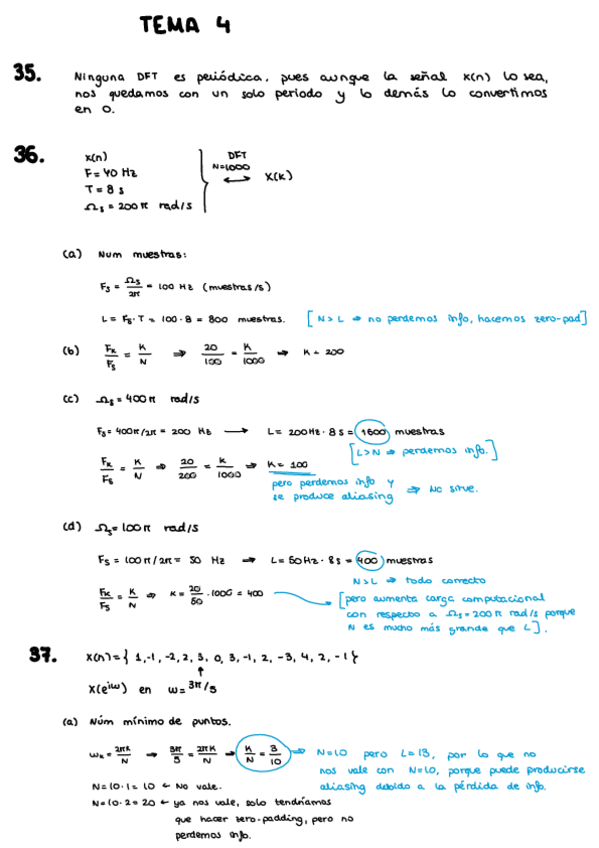 TEMA 4
35. Ninguna DFT es periódica, pues aunque la señal x(n) lo sea,
nos quedamos con un solo periodo y lo demás lo convertimos
en 0.
36. x(n)
F = 40 Hz
T = 8 s
Ωs = 200π rad/s
DFT
N=1000
↔ X(k)
(a) Num muestras:
Fs = Ωs/2π = 100 Hz (muestras/s)
L = Fs · T = 100 · 8 = 800 muestras. [N > L ⇒ no perdemos info, hacemos zero-pad]
(b) Fk/Fs = K/N ⇒ 20/100 = K/1000 ⇒ K = 200
(c) Ωs = 400π rad/s
Fs = 400π/2π = 200 Hz → L = 200Hz · 8 s = 1600 muestras
[L>N ⇒ perdemos info.]
Fk/Fs = K/N ⇒ 20/200 = K/1000 ⇒ K = 100
pero perdemos info y
se produce aliasing ⇒ No sirve.
(d) Ωs = 100π rad/s
Fs = 100π/2π = 50 Hz → L = 50Hz · 8s = 400 muestras
N>L ⇒ todo correcto
Fk/Fs = K/N ⇒ K = 20/50 · 1000 = 400
[pero aumenta carga computacional
con respecto a Ωs = 200π rad/s porque
N es mucho más grande que L].
37. x(n) = { 1, -1, -2, 2, 3, 0, 3, -1, 2, -3, 4, 2, -1 }
↑
X(e^jω) en ω = 3π/5
(a) Núm mínimo de puntos.
ωk = 2πk/N ⇒ 3π/5 = 2πK/N ⇒ K/N = 3/10 ⇒ N=10 pero L=13, por lo que no
nos vale con N=10, porque puede producirse
aliasing debido a la pérdida de info.
N = 10·1 = 10 ← No vale.
N = 10·2 = 20 ← ya nos vale, solo tendríamos
que hacer zero-padding, pero no
perdemos info.